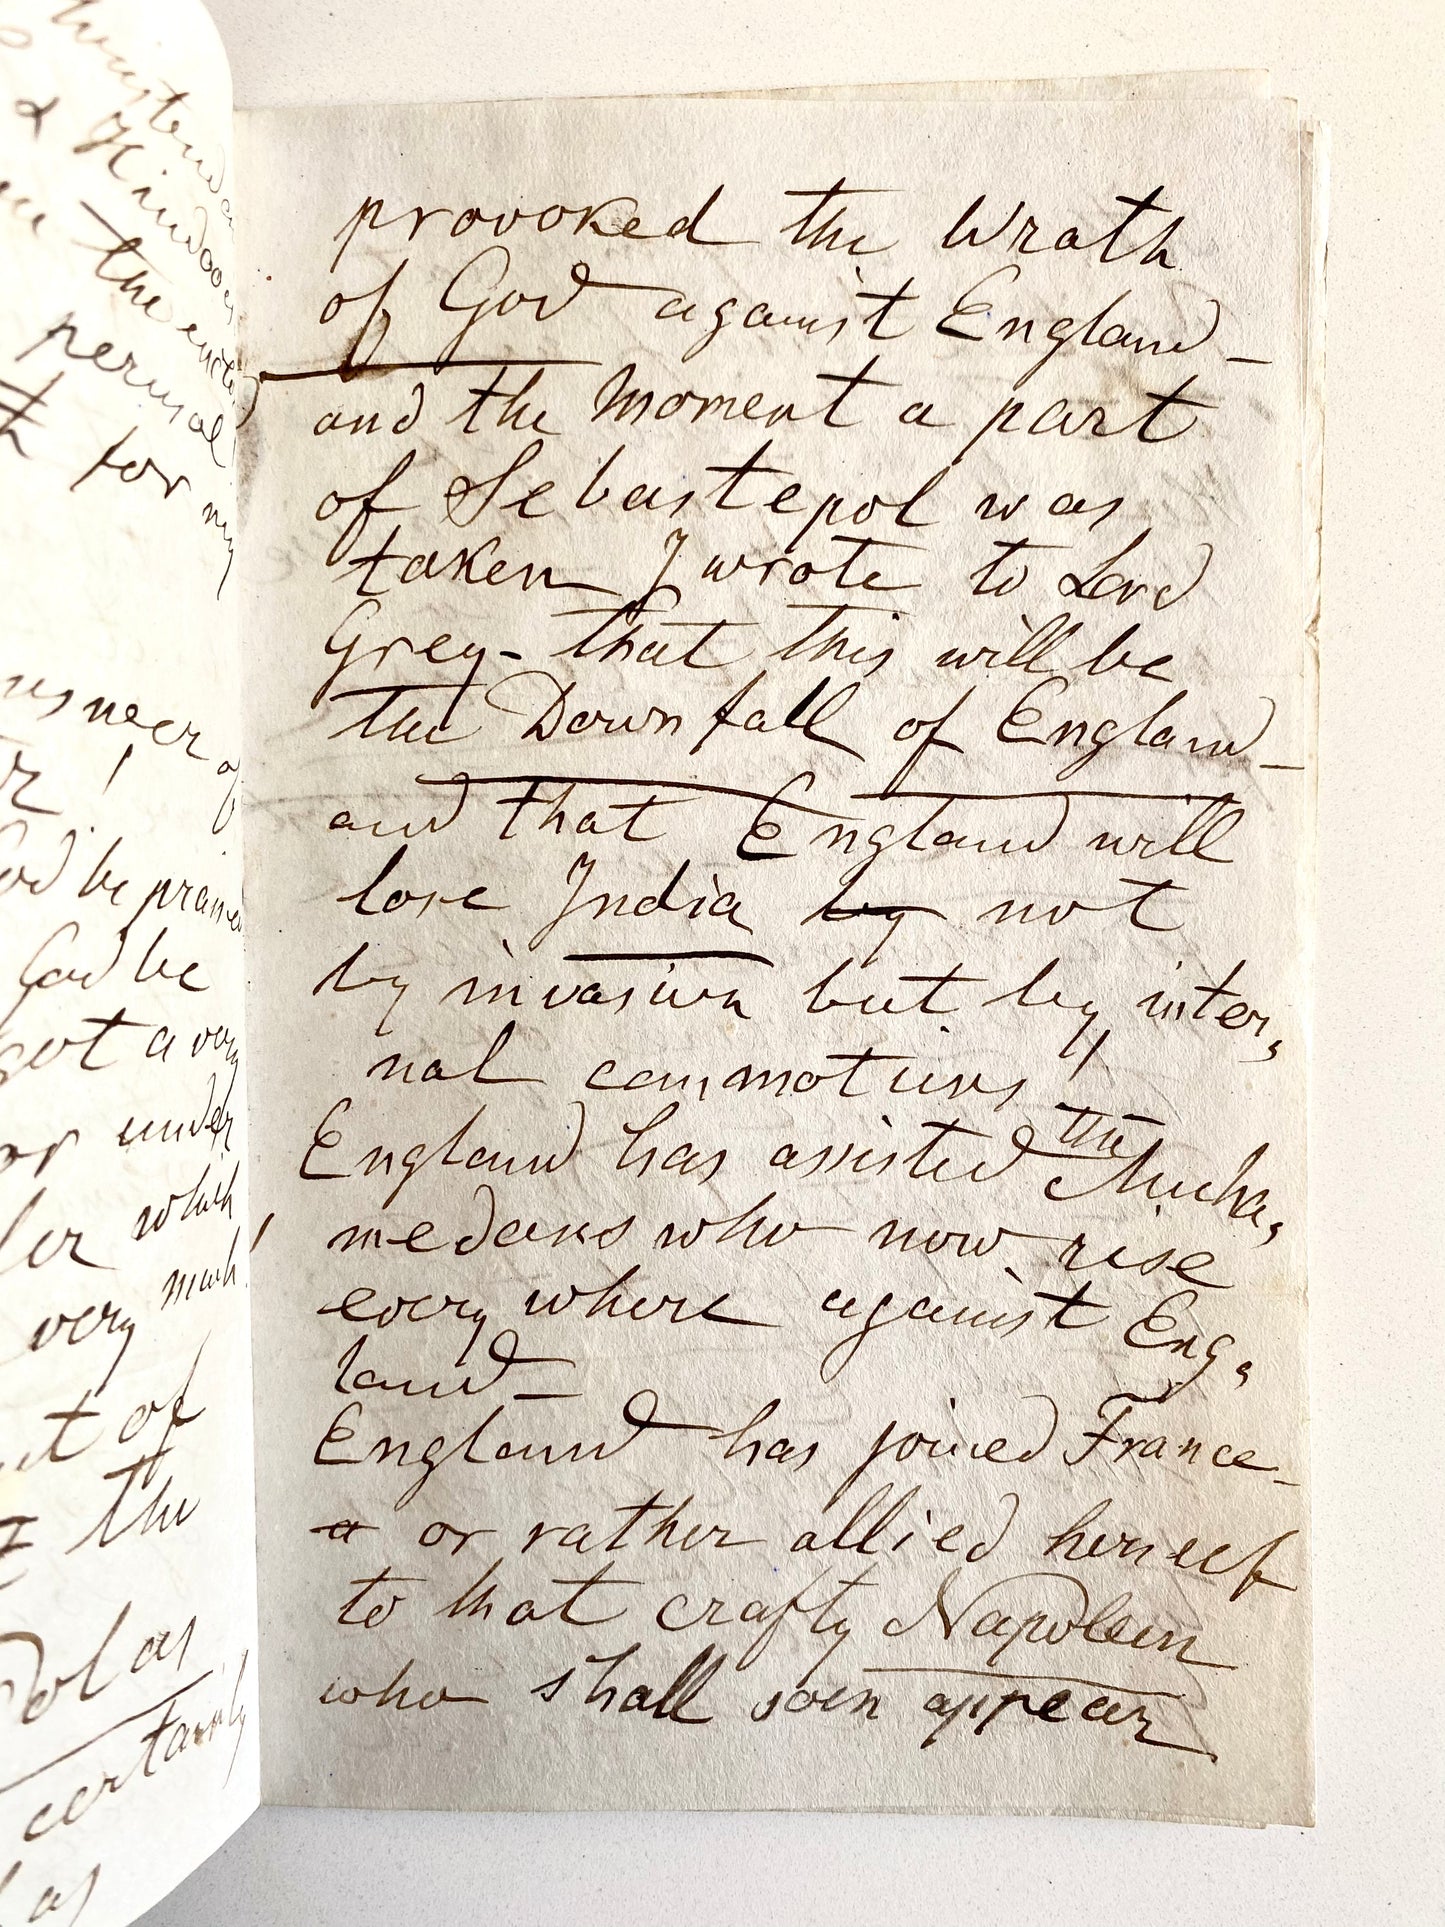 Hindoos
in the
perusal
for my
never of
God be praised
God be
got a very
or under
which
very much
of
the
as
certainly
as
provoked the Wrath
of God against England –
and the Moment a part
of Sebastepol was
taken I wrote to Lord
Grey – that this will be
the Downfall of England –
and that England will
lose India by not
by invasion but by inter,
nal commotions!
England has assisted the Muha,
medans who now rise
every where against Eng,
land –
England has joined France –
a or rather allied herself
to that crafty Napoleon
who shall soon appear